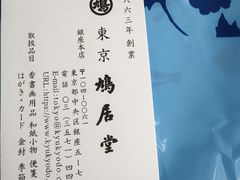 六六三年 創業
鳩
東京 鳩居堂
銀座本店
〒一〇四-〇〇六一
東京都中央区銀座五-七-
電話 〇三(三五七一)四四
E-mail:tokyo@kyukyodo.c
URL:https://www.kyukyodo.
取扱品目
香 書画用品 和紙小物 便箋
はがき・カード 金封 季節